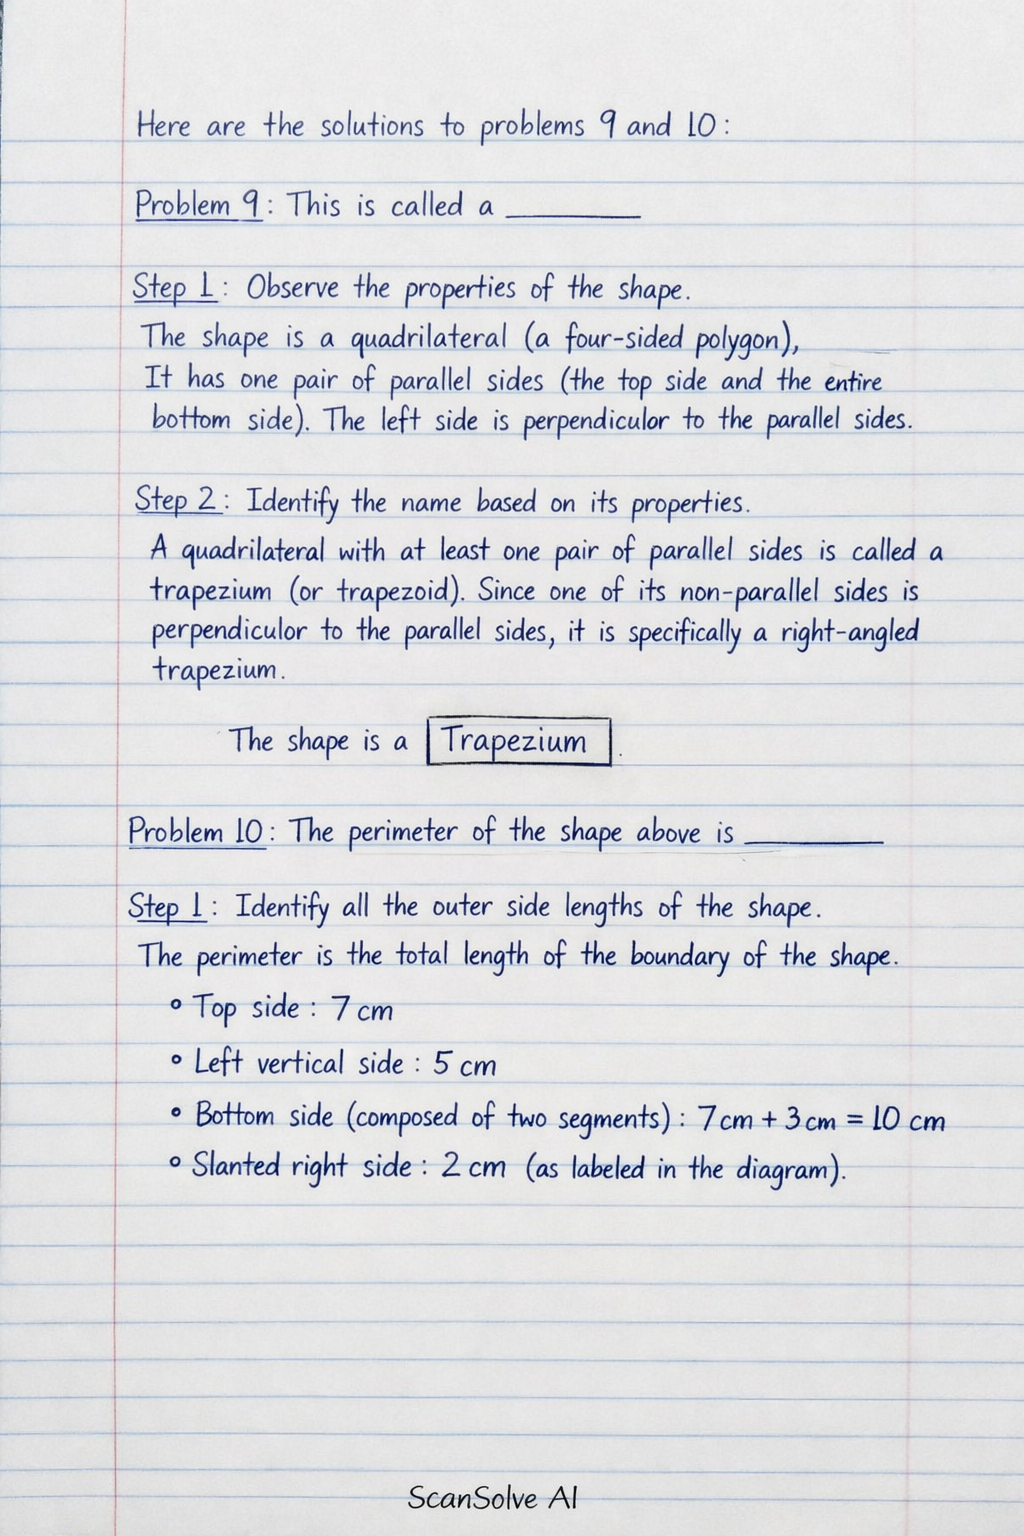 Here are the solutions to problems 9 and 10:
Problem 9: This is called a ________
Step 1: Observe the properties of the shape.
The shape is a quadrilateral (a four-sided polygon),
It has one pair of parallel sides (the top side and the entire
bottom side). The left side is perpendiculor to the parallel sides.
Step 2: Identify the name based on its properties.
A quadrilateral with at least one pair of parallel sides is called a
trapezium (or trapezoid). Since one of its non-parallel sides is
perpendiculor to the parallel sides, it is specifically a right-angled
trapezium.
The shape is a Trapezium.
Problem 10: The perimeter of the shape above is ________
Step 1: Identify all the outer side lengths of the shape.
The perimeter is the total length of the boundary of the shape.
∘ Top side: 7 cm
∘ Left vertical side: 5 cm
∘ Bottom side (composed of two segments): 7 cm + 3 cm = 10 cm
∘ Slanted right side: 2 cm (as labeled in the diagram).
ScanSolve AI